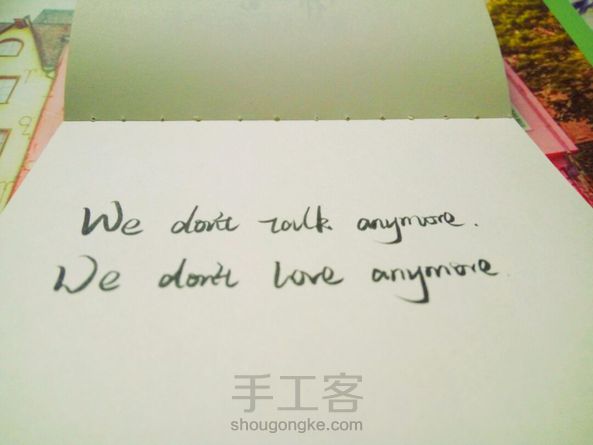 We don't talk anymore.
We don't love anymore.
手工客
shougongke.com